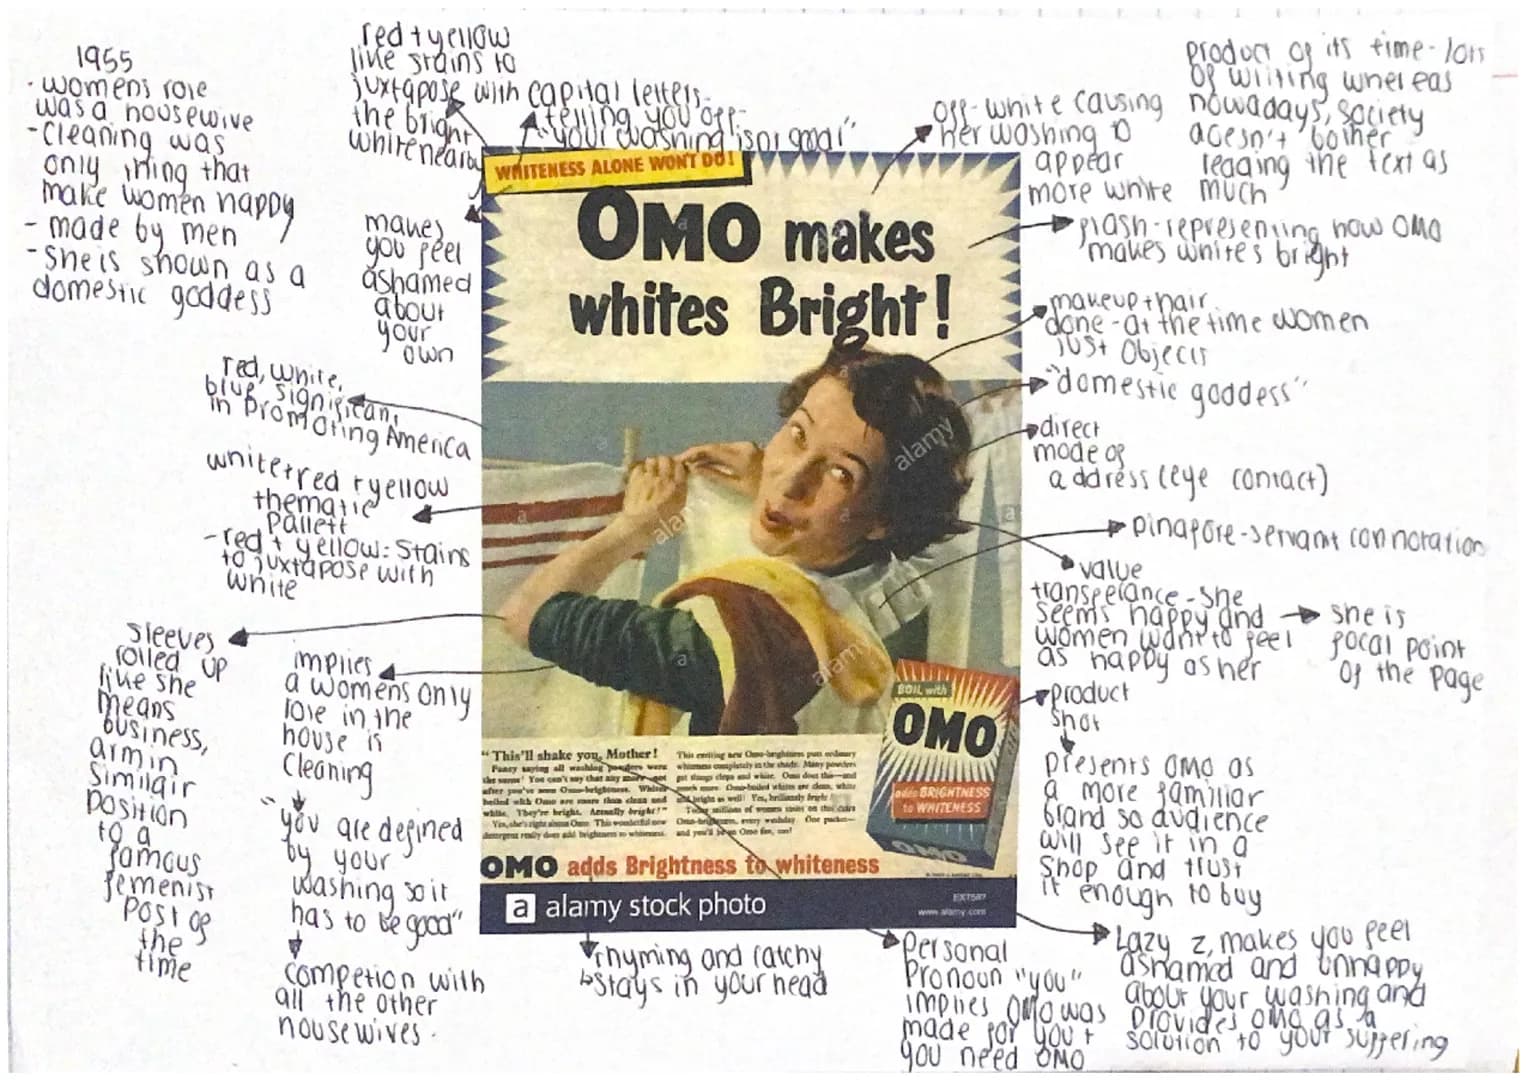 1955
- womens role
was a housewive
- cleaning was
only thing that
make women happy
- made by men
- she is shown as a
domestic goddess
red + yellow
like stains to
juxtapose with
the bright
white nearby
capital letters -
telling you off -
"your washing isnt good"
off-white causing
her washing to
appear
more white
product of its time - lots
of writing whereas
nowadays, society
doesn't bother
reading the text as
much
makes
you feel
ashamed
about
your
own
WHITENESS ALONE WON'T DO!
OMO makes
whites Bright!
flash - representing how OMO
makes whites bright
makeup + hair
done - at the time women
just objects
"domestic goddess"
direct
mode of
address (eye contact)
pinafore - servant connotation
value
transferance - she
seems happy and
women want to feel
as happy as her
she is
focal point
of the page
red, white,
blue significant
in promoting America
white + red + yellow
thematic
pallett
- red + yellow: stains
to juxtapose with
white
sleeves
rolled up
like she
means
business,
arm in
similair
position
to a
famous
femenist
post of
the
time
implies
a womens only
role in the
house is
cleaning
"you are defined
by your
washing so it
has to be good"
competion with
all the other
housewives.
alamy
alamy
alamy
BOIL with
OMO
adds BRIGHTNESS
to WHITENESS
OMO
product
shot
presents OMO as
a more familiar
brand so audience
will see it in a
shop and trust
it enough to buy
"This'll shake you, Mother!
Fancy saying all washing powders were
the same! You can't say that any more—not
after you've seen Omo-brightness. Whites
boiled with Omo are more than clean and
white. They're bright. Actually bright!"
Yes, she's right about Omo. This wonderful new
detergent really does add brightness to whiteness.
This exciting new Omo-brightness puts ordinary
whiteness completely in the shade. Many powders
get things clean and white. Omo does this—and
much more. Omo-boiled whites are clean, white
and bright as well! Yes, brilliantly bright!
Today millions of women insist on this extra
Omo-brightness, every washday. One packet—
and you'll be an Omo fan, too!
OMO adds Brightness to whiteness
a alamy stock photo
www.alamy.com
rhyming and catchy
stays in your head
Personal
Pronoun "you"
implies OMO was
made for you +
you need OMO
Lazy z, makes you feel
ashamed and unhappy
about your washing and
provides OMO as a
solution to your suffering